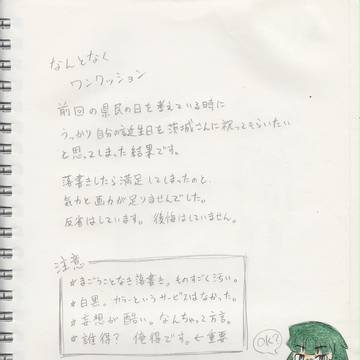 なんとなく
ワンクッション
前回の県民の日を考えている時に
うっかり自分の誕生日を茨城さんに祝ってもらいたい
と思ってしまった結果です。
落書きしたら満足してしまったのと、
気力と画力が足りませんでした。
反省はしています。後悔はしていません。
注意
*まごうことなき落書き。ものすごく汚い。
*白黒。カラーというサービスはなかった。
*妄想が酷い。なんちゃって方言。
*誰得? 俺得です。←重要
OK?